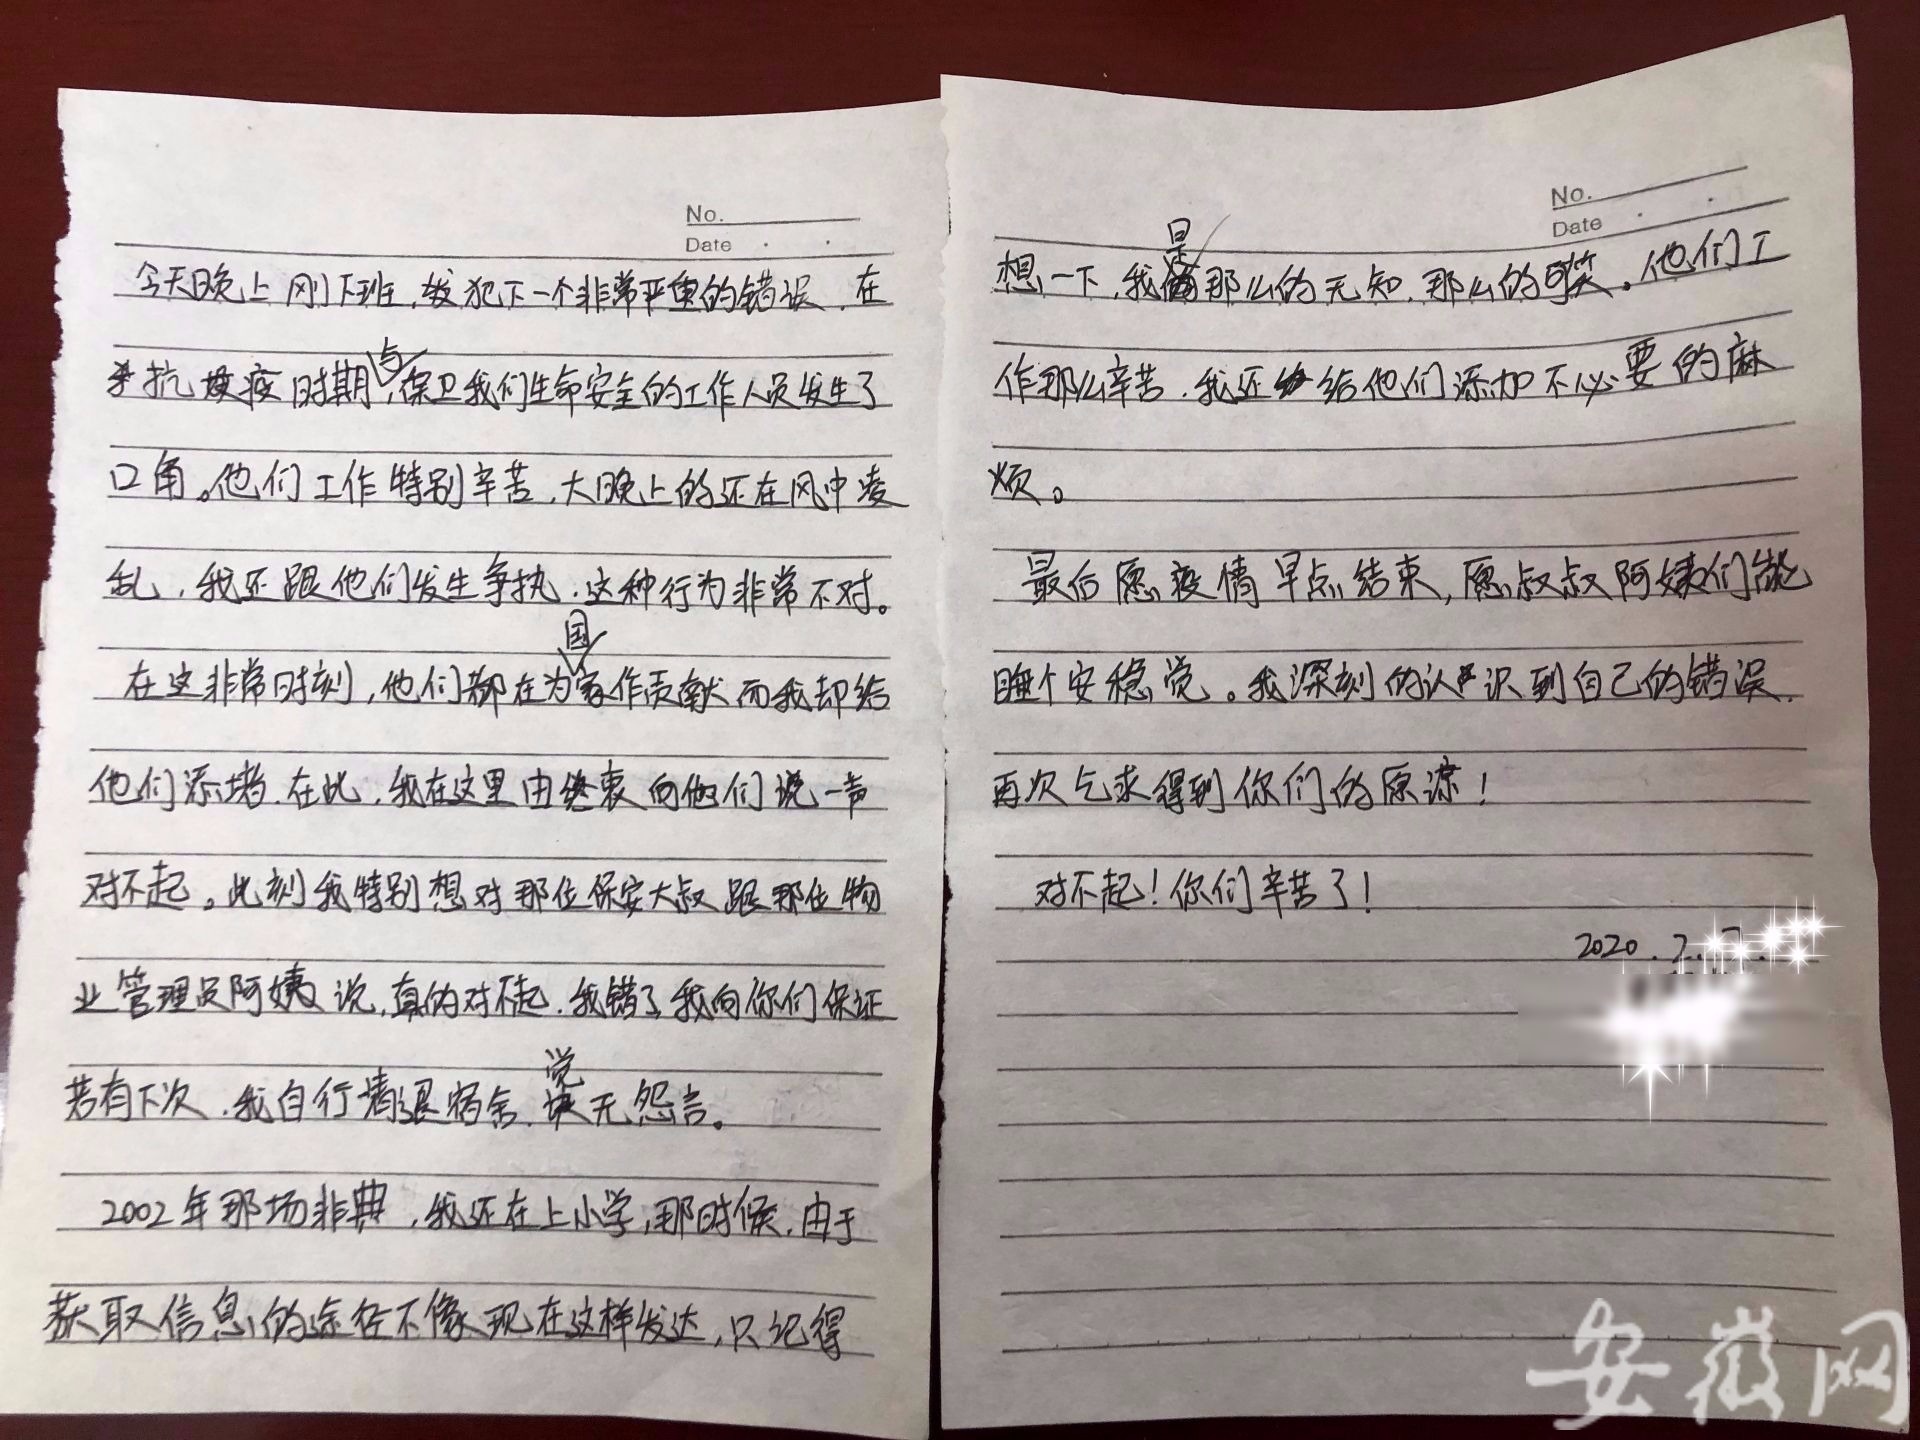 No.
Date
今天晚上刚下班,我犯下一个非常严重的错误,在
抗疫时期,与保卫我们生命安全的工作人员发生了
口角。他们工作特别辛苦,大晚上的还在风中凌
乱,我还跟他们发生争执,这种行为非常不对。
在这非常时刻,他们都在为国家作贡献而我却给
他们添堵,在此,我在这里由衷向他们说一声
对不起。此刻我特别想对那位保安大叔跟那位物
业管理员阿姨说,真的对不起,我错了,我向你们保证
若有下次,我自行请退宿舍,觉无怨言。
2002年那场非典,我还在上小学,那时候,由于
获取信息的途径不像现在这样发达,只记得
No.
Date
想一下,我是那么的无知,那么的可笑。他们工
作那么辛苦,我还给他们添加不必要的麻
烦。
最后愿疫情早点结束,愿叔叔阿姨们能
睡个安稳觉。我深刻的认识到自己的错误,
再次乞求得到你们的原谅!
对不起!你们辛苦了!
2020.2.7
安徽网